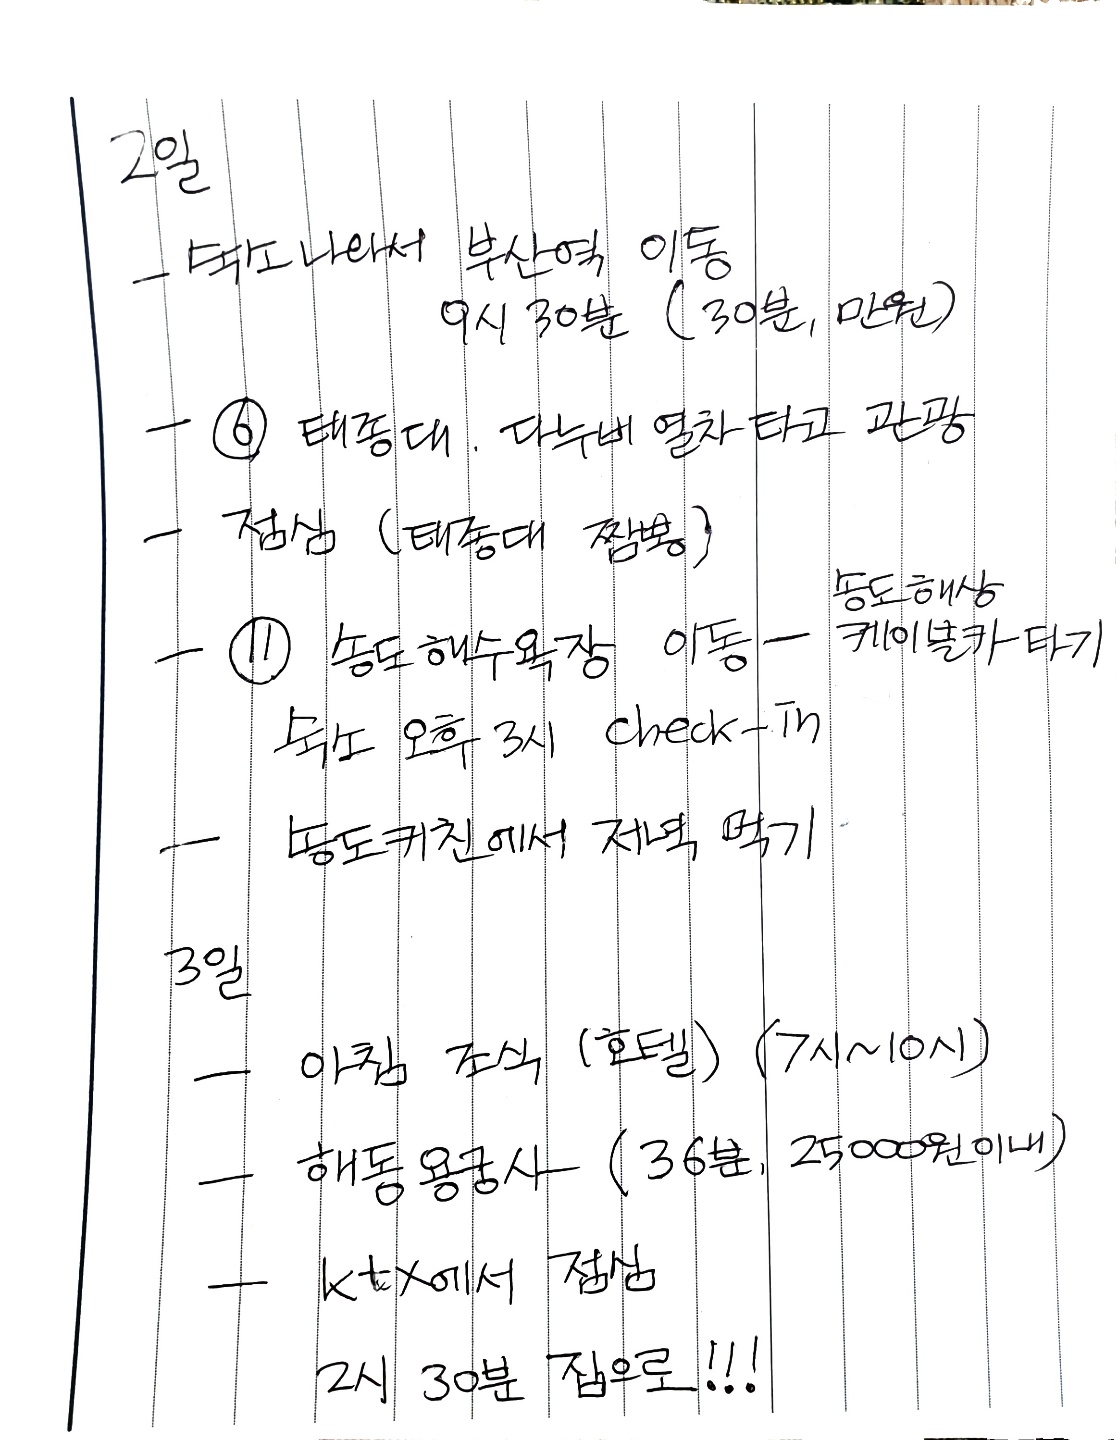 2일
- 숙소나와서 부산역 이동
9시 30분 (30분, 만원)
- ⑥ 태종대. 다누비 열차 타고 관광
- 점심 (태종대 짬뽕)
- ⑪ 송도해수욕장 이동 - 송도해상
케이블카 타기
숙소 오후 3시 check-In
- 송도키친에서 저녁 먹기
3일
- 아침 조식 (호텔) (7시~10시)
- 해동용궁사 (36분, 25000원이내)
- ktx에서 점심
2시 30분 집으로!!!